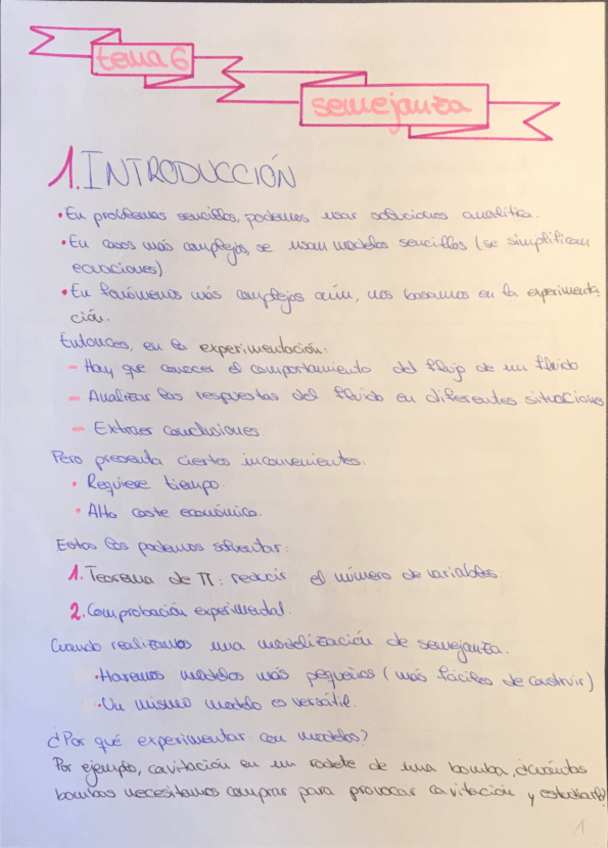 tema 6
semejanza
1. INTRODUCCIÓN
• En problemas sencillos, podemos usar soluciones analítica.
• En casos más complejos, se usan modelos sencillos (se simplifican
ecuaciones)
• En fenómenos más complejos aún, nos basamos en la experimenta-
ción.
Entonces, en la experimentación:
- Hay que conocer el comportamiento del flujo de un fluido
- Analizar las respuestas del fluido en diferentes situaciones
- Extraer conclusiones
Pero presenta ciertos inconvenientes.
• Requiere tiempo.
• Alto coste económico.
Estos los podemos solventar:
1. Teorema de π: reducir el número de variables.
2. Comprobación experimental.
Cuando realizamos una modelización de semejanza.
• Haremos modelos más pequeños (más fáciles de construir)
• Un mismo modelo es versátil.
¿Por qué experimentar con modelos?
Por ejemplo, cavitación en un rodete de una bomba, ¿cuántas
bombas necesitamos comprar para provocar cavitación y estudiarla?
1